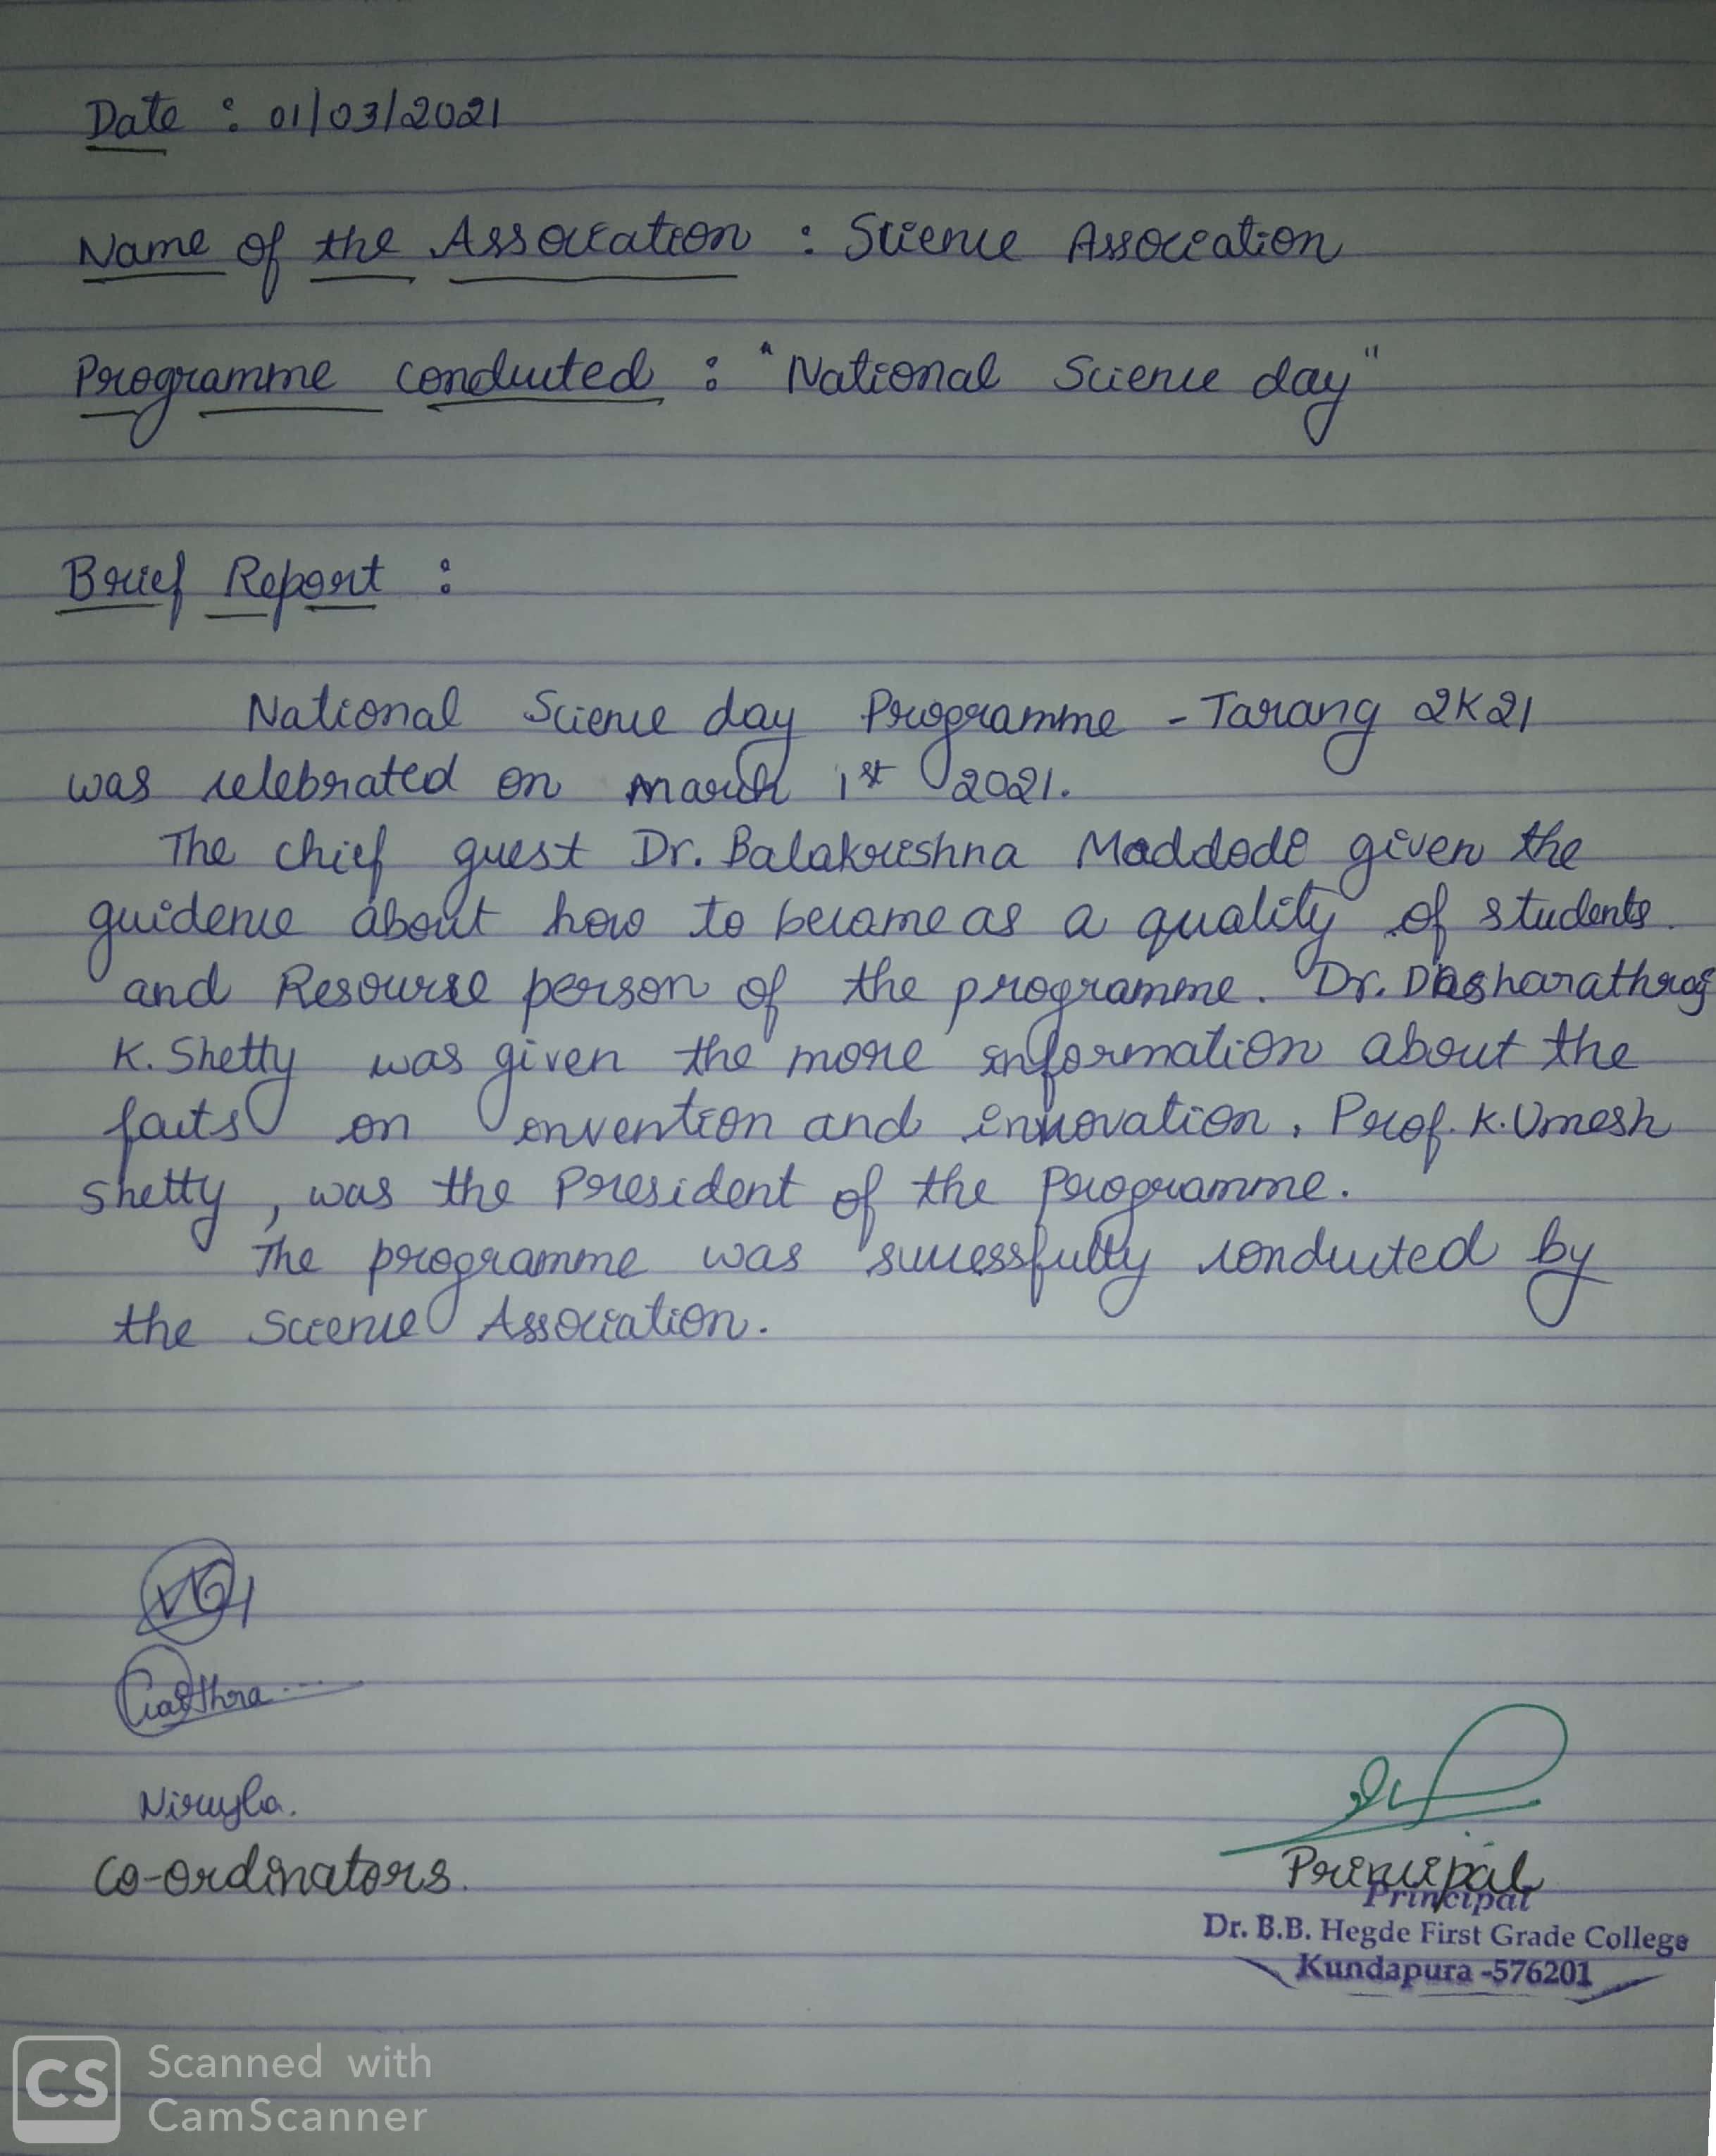 Date : 01/03/2021
Name of the Association : Science Association
Programme conducted : "National Science day"
Brief Report :
National Science day Programme - Tarang 2K21
was celebrated on march 1st 2021.
The chief guest Dr. Balakrishna Maddodi given the
guidence about how to became as a quality of students
and Resource person of the programme. Dr. Dasharathraj
K. Shetty was given the more information about the
facts on invention and innovation, Prof. K. Umesh
Shetty, was the President of the Programme.
The programme was successfully conducted by
the Science Association.
Co-ordinators.
Principal
Principal
Dr. B.B. Hegde First Grade College
Kundapura -576201
CS Scanned with
CamScanner